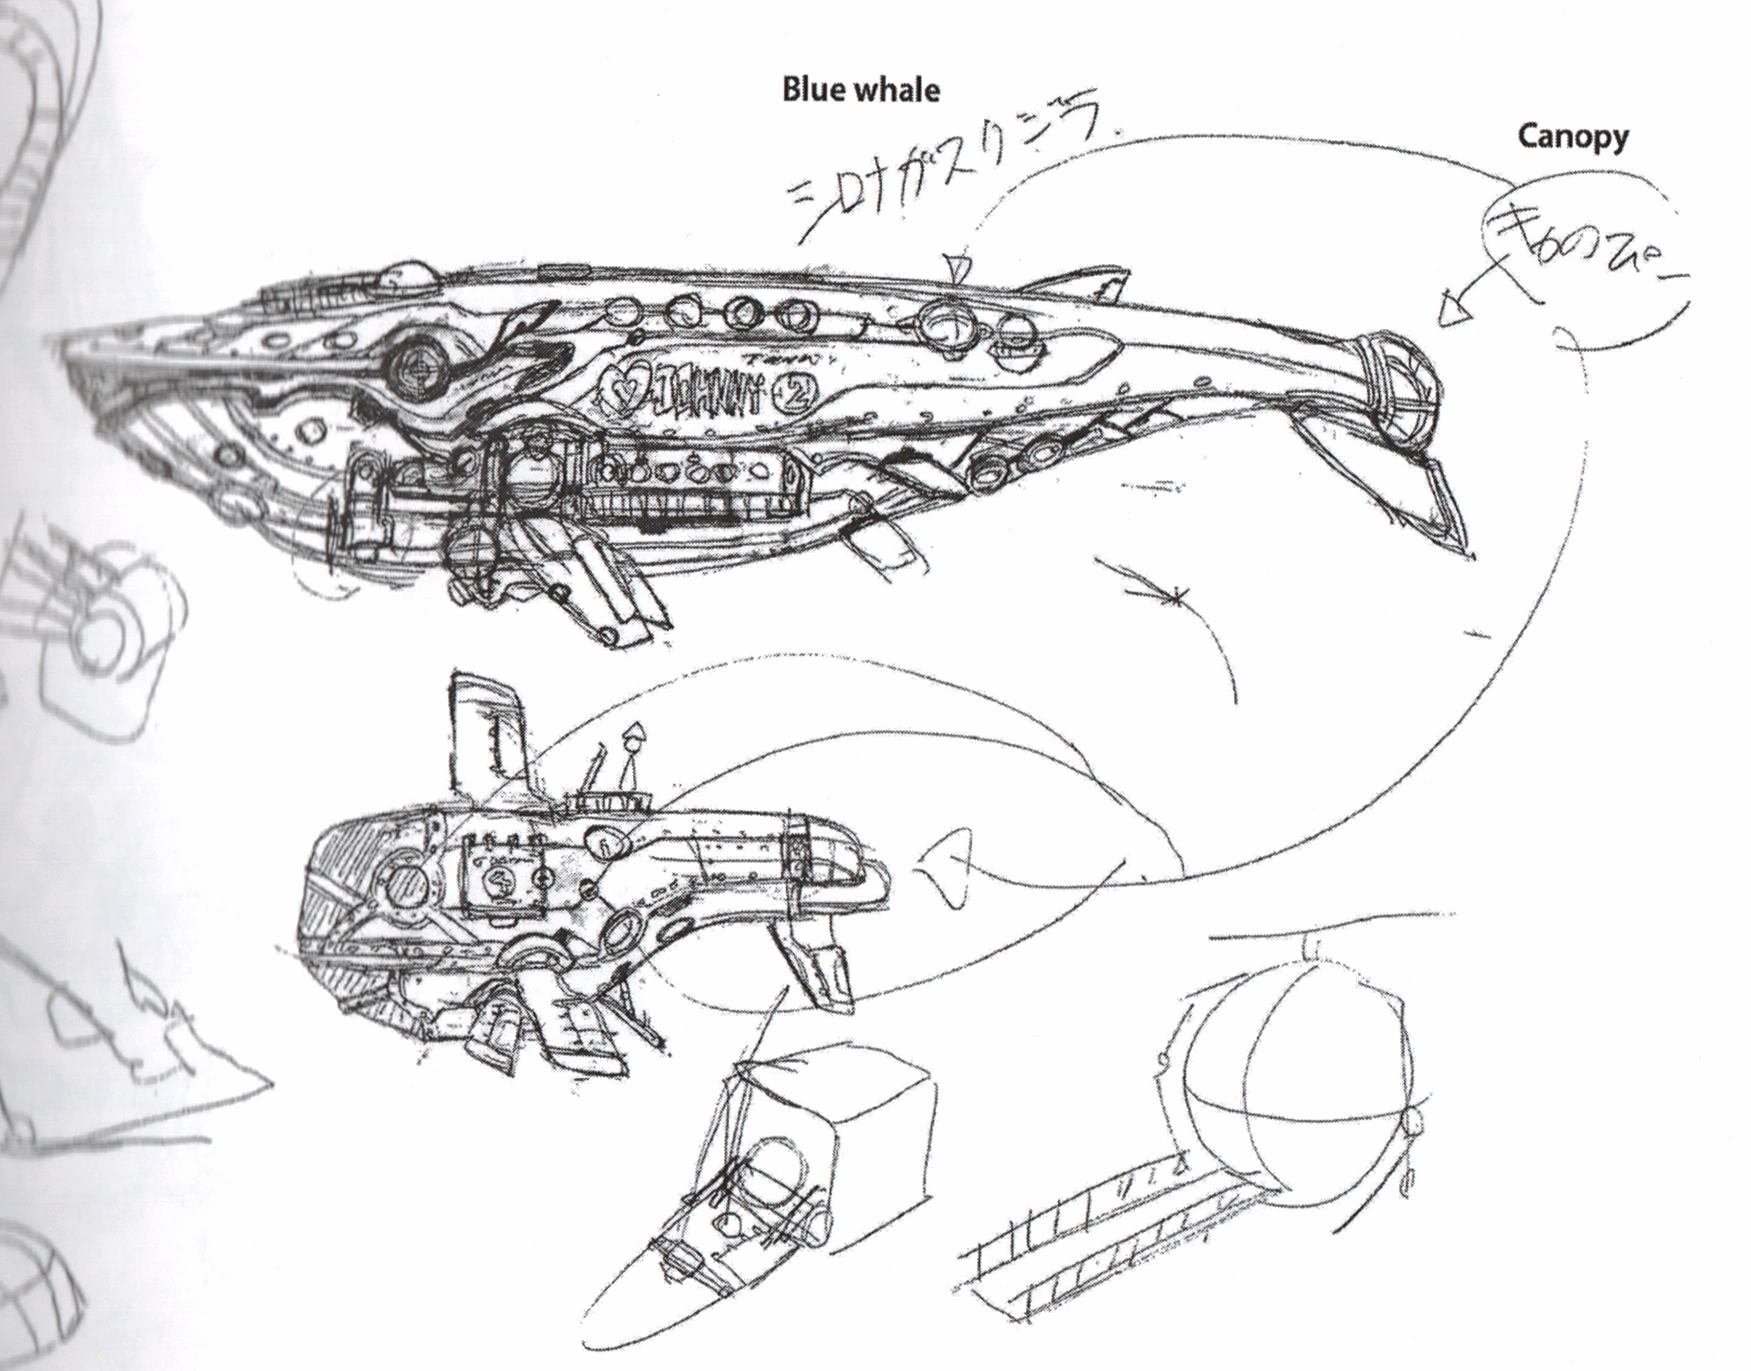 Blue whale
シロナガスクジラ
Canopy
キャノピー
JOHNNY 2